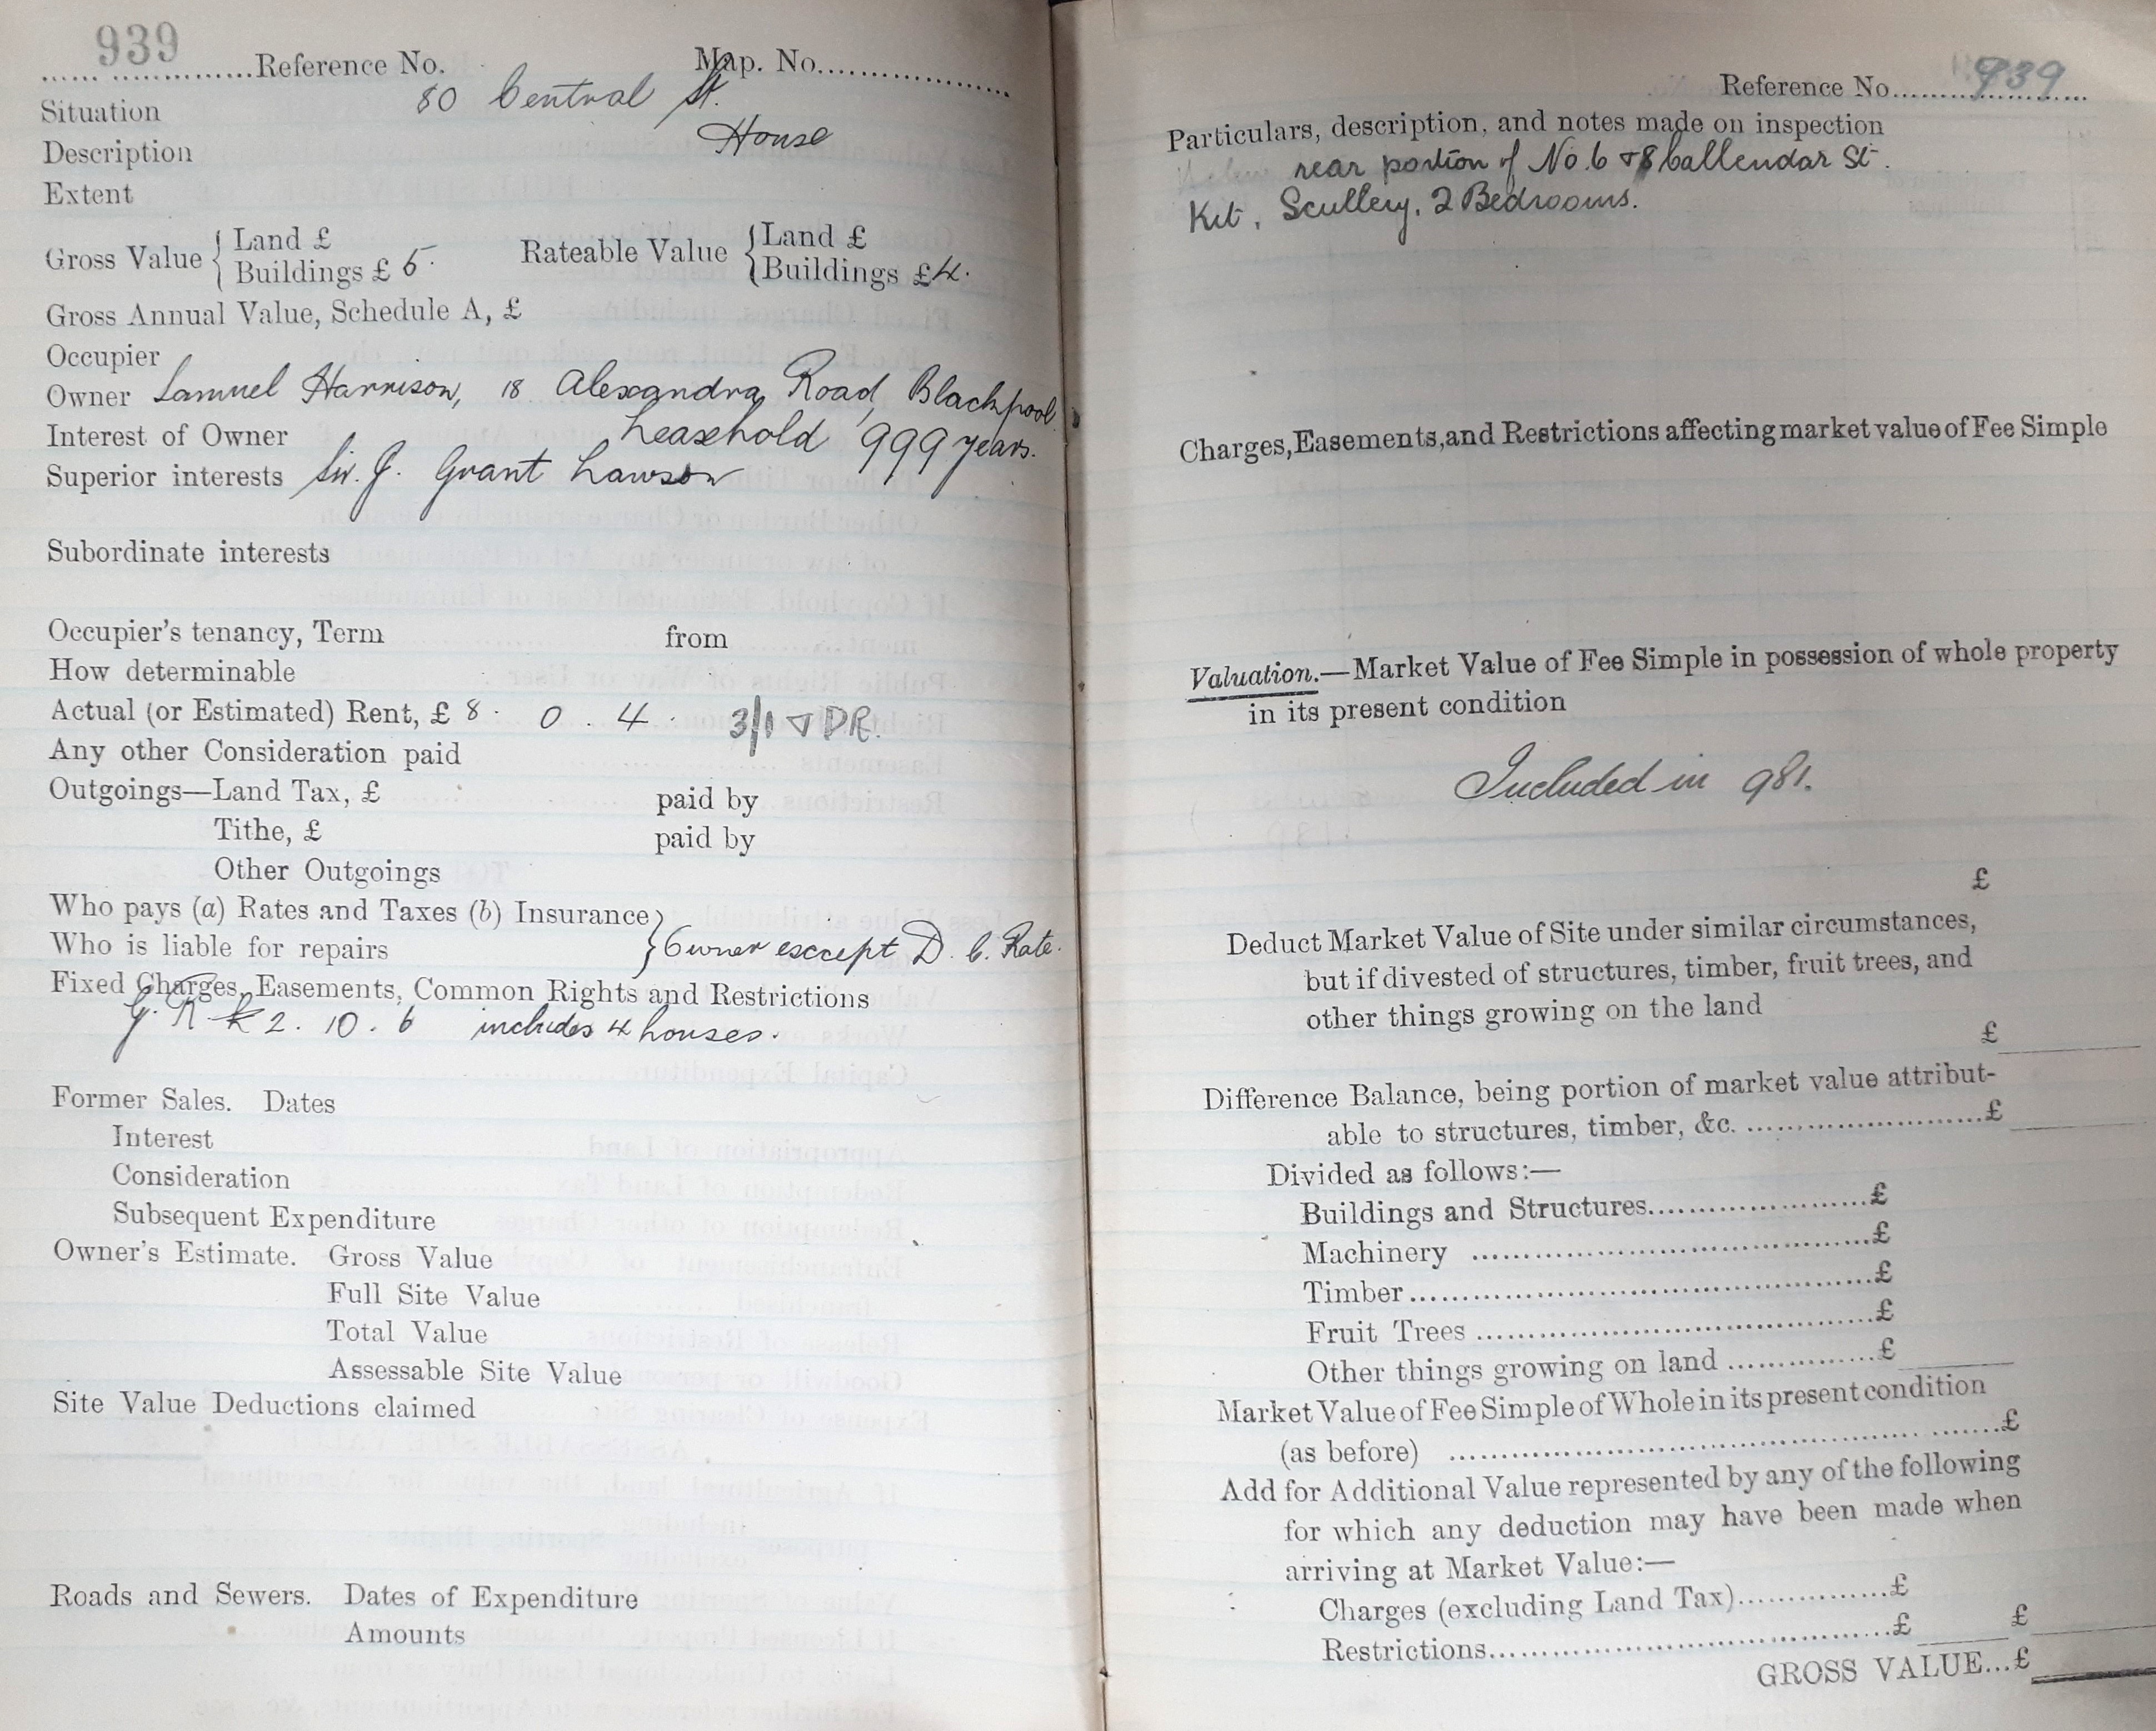 939
Reference No. Map. No.
Situation 80 Central St.
Description House
Extent
Gross Value { Land £
Buildings £ 5. Rateable Value { Land £
Buildings £4.
Gross Annual Value, Schedule A, £
Occupier
Owner Samuel Harrison, 18 Alexandra Road, Blackpool.
Interest of Owner Leasehold 999 years.
Superior interests Sir. J. Grant Lawson
Subordinate interests
Occupier's tenancy, Term from
How determinable
Actual (or Estimated) Rent, £ 8. 0. 4. 3/1 & DR.
Any other Consideration paid
Outgoings—Land Tax, £ paid by
Tithe, £ paid by
Other Outgoings
Who pays (a) Rates and Taxes (b) Insurance }
Who is liable for repairs } Owner except D. C. Rate.
Fixed Charges, Easements, Common Rights and Restrictions
G. R £2. 10. 6 includes 4 houses.
Former Sales. Dates
Interest
Consideration
Subsequent Expenditure
Owner's Estimate. Gross Value
Full Site Value
Total Value
Assessable Site Value
Site Value Deductions claimed
Roads and Sewers. Dates of Expenditure
Amounts
Reference No. 939
Particulars, description, and notes made on inspection
rear portion of No. 6 & 8 Callendar St.
Kit, Scullery, 2 Bedrooms.
Charges, Easements, and Restrictions affecting market value of Fee Simple
Valuation.—Market Value of Fee Simple in possession of whole property
in its present condition
Included in 981.
£
Deduct Market Value of Site under similar circumstances,
but if divested of structures, timber, fruit trees, and
other things growing on the land
£
Difference Balance, being portion of market value attribut-
able to structures, timber, &c. £
Divided as follows:—
Buildings and Structures £
Machinery £
Timber £
Fruit Trees £
Other things growing on land £
Market Value of Fee Simple of Whole in its present condition
(as before) £
Add for Additional Value represented by any of the following
for which any deduction may have been made when
arriving at Market Value:—
Charges (excluding Land Tax) £
Restrictions £ £
GROSS VALUE...£